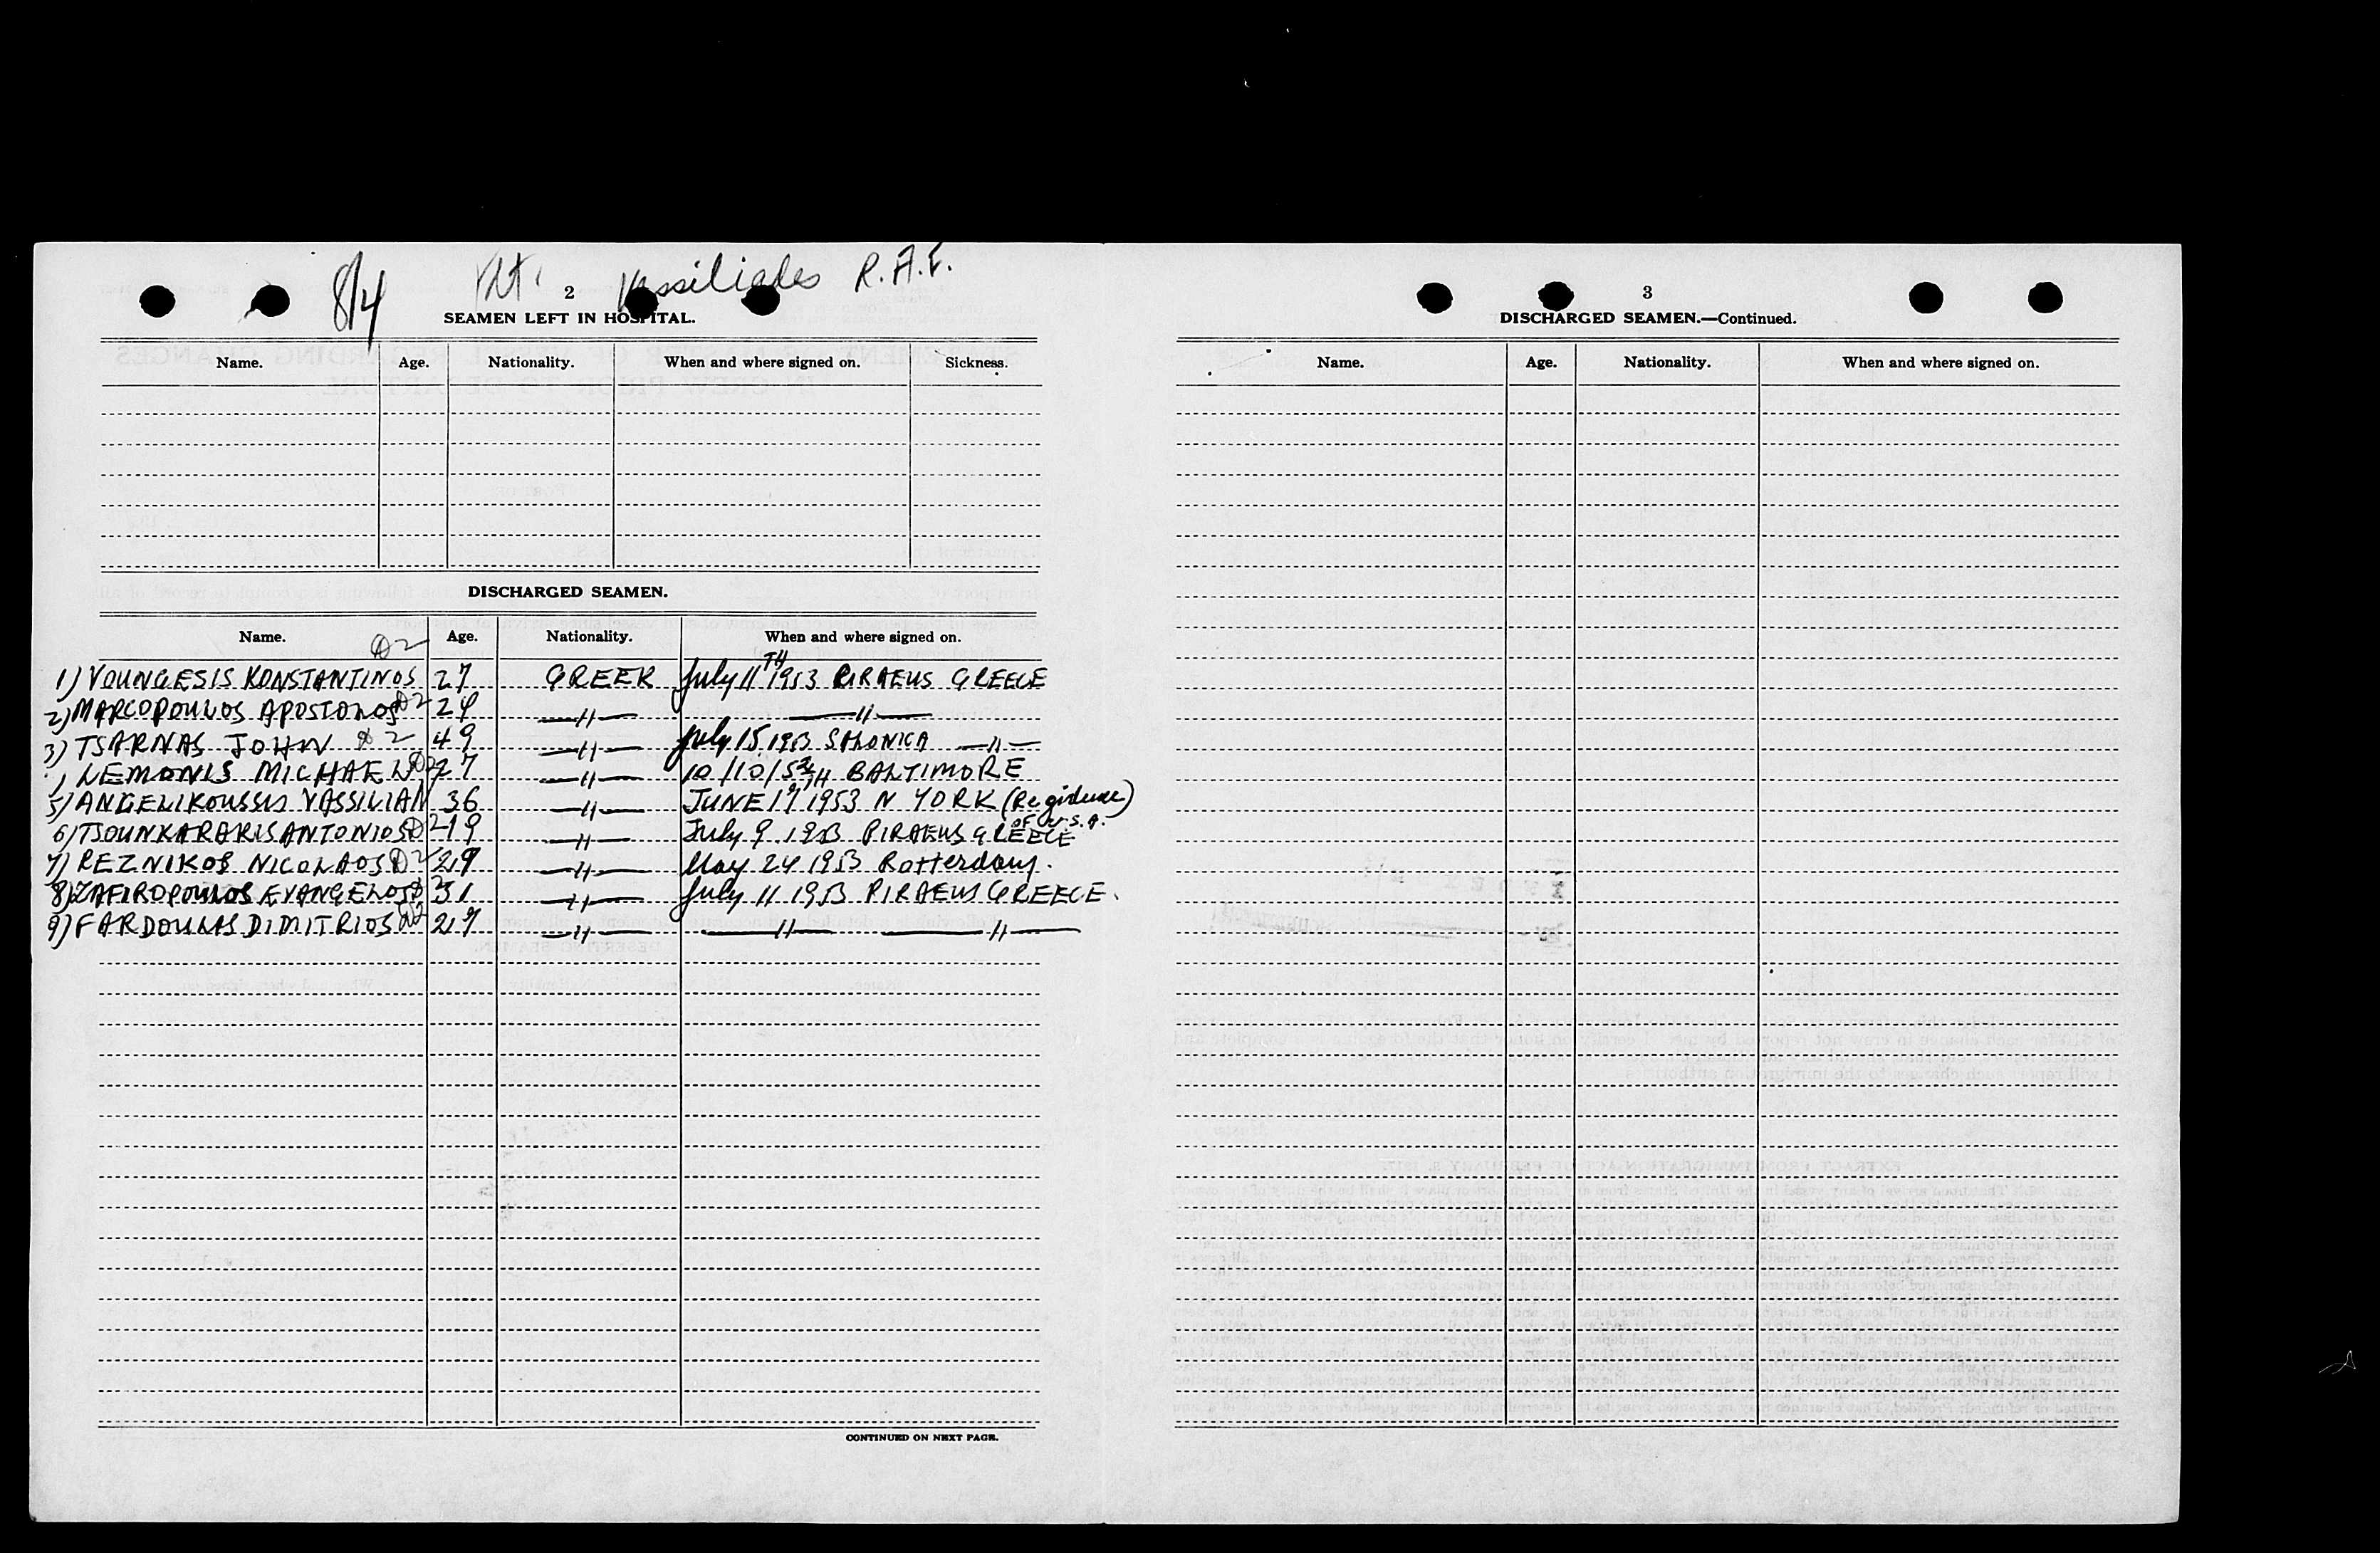 8/4 Vassiliades R.A.F.
2
SEAMEN LEFT IN HOSPITAL.
Name. Age. Nationality. When and where signed on. Sickness.
DISCHARGED SEAMEN.
Name. Age. Nationality. When and where signed on.
D2
1) VOUNGESIS KONSTANTINOS 27 GREEK July 11TH 1953 PIRAEUS GREECE
2) MARCOPOULOS APOSTOLOS D2 24 —〃— —〃—
3) TSARNAS JOHN D2 49 —〃— July 15 1953 SALONICA —〃—
) LEMONIS MICHAEL D2 27 —〃— 10/10/52TH BALTIMORE
5) ANGELIKOUSSIS VASSILIAN 36 —〃— JUNE 17 1953 N YORK (Regidence)
OF U.S.A.
6) TSOUNKARAKIS ANTONIOS D2 19 —〃— July 9 1953 PIRAEUS GREECE
7) REZNIKOS NICOLAOS D2 29 —〃— May 24 1953 Rotterdam.
8) ZAFIROPOULOS EVANGELOS D2 31 —〃— July 11 1953 PIRAEUS GREECE.
9) FARDOULAS DIMITRIOS D2 27 —〃— —〃— —〃—
CONTINUED ON NEXT PAGE.
3
DISCHARGED SEAMEN.—Continued.
Name. Age. Nationality. When and where signed on.